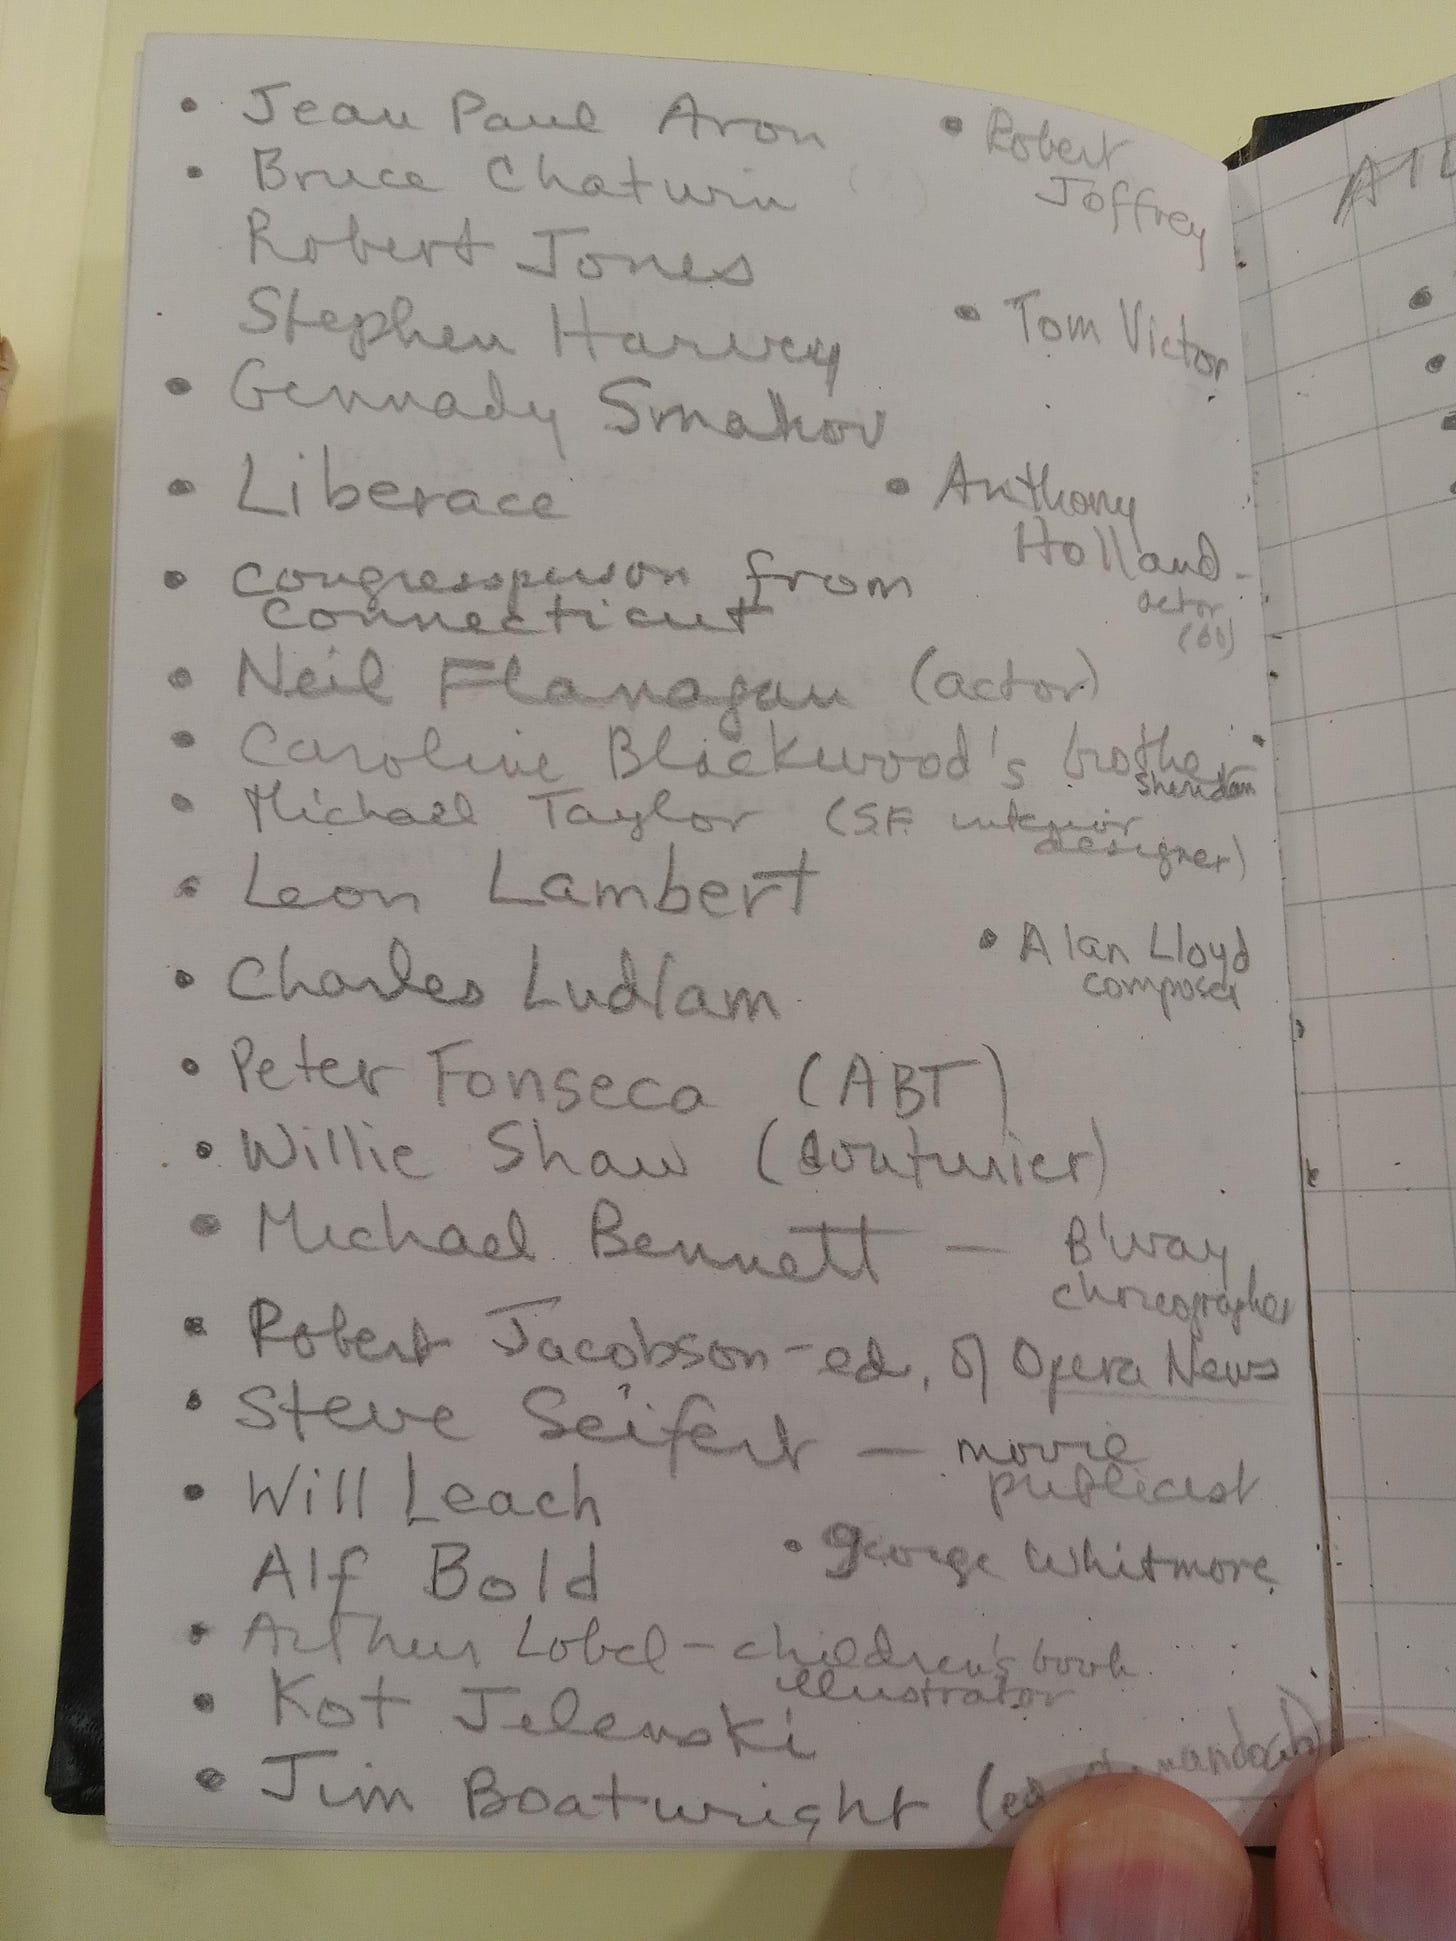 • Jean Paul Aron
• Robert
Joffrey
• Bruce Chatwin
Robert Jones
Stephen Harvey
• Tom Victor
• Gennady Smakov
• Liberace
• Anthony
Holland -
actor
• congressperson from
Connecticut
• Neil Flanagan (actor)
• Caroline Blackwood's brother
Sheridan
• Michael Taylor (SF interior
designer)
• Leon Lambert
• Alan Lloyd
composer
• Charles Ludlam
• Peter Fonseca (ABT)
• Willie Shaw (couturier)
• Michael Bennett — B'way
choreographer
• Robert Jacobson - ed. of Opera News
• Steve Seifert — movie
publicist
• Will Leach
• George Whitmore
Alf Bold
• Arthur Lobel - children's book
illustrator
• Kot Jelenski
• Jim Boatwright (ed
A1